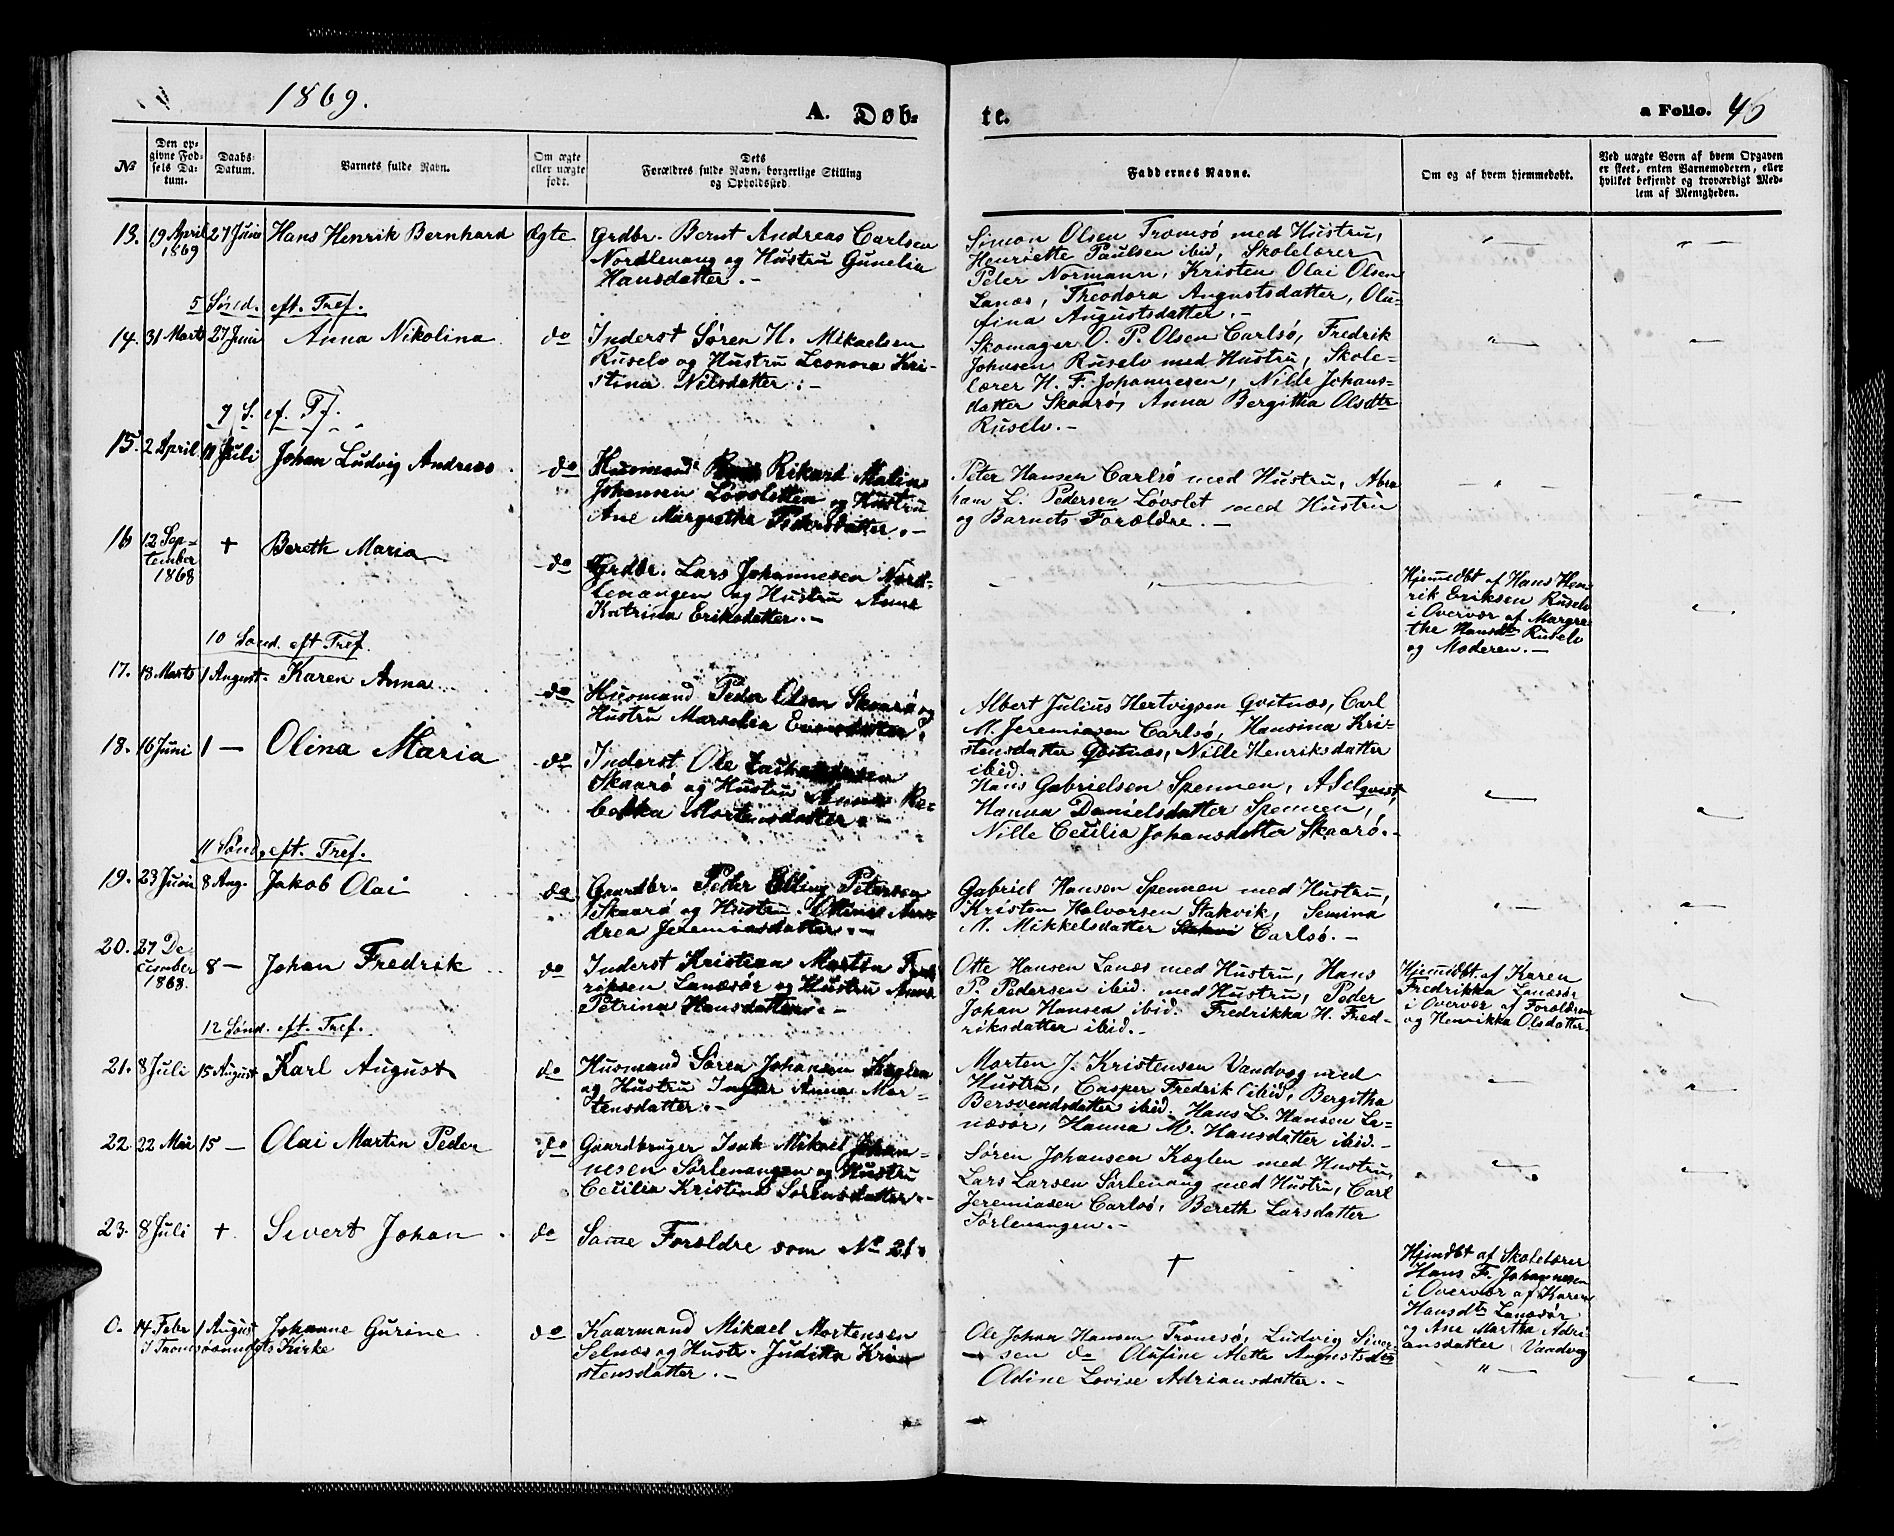 1869.
A. Døb-
te.
a Folio. 46
№
Den op-
givne Fød-
sels Da-
tum.
Daabs-
Datum.
Barnets fulde Navn.
Om ægte
eller uægte
født.
Dets
Forældres fulde Navn, borgerlige Stilling
og Opholdssted.
Faddernes Navne.
Om og af hvem hjemmedøbt.
Ved uægte Børn af hvem Opgaven
er skeet, enten Barnemoderen, eller
hvilket bekjendt og troværdigt Med-
lem af Menigheden.
13. 19 April 1869 27 Juni Hans Henrik Bernhard Ægte
Grdbr. Bernt Andreas Carlsen
Nordlenang og Hustru Gunelia
Hansdatter. -
Simon Olsen Tromsø med Hustru,
Henriette Paulsen ibid, Skolelærer
Peter Normann, Kristen Olai Olsen
Lanæs, Theodora Augustsdatter, Olu-
fina Augustsdatter. -
5 Sønd. eft. Tref.
14. 31 Marts 27 Juni Anna Nikolina do
Inderst Søren H. Mikaelsen
Ruselv og Hustru Leonora Kri-
stina Nilsdatter. -
Skomager O. P. Olsen Carlsø, Fredrik
Johnsen Ruselv med Hustru, Skole-
lærer H. F. Johannesen, Nille Johans-
datter Skaarø, Anna Bergitha Olsdtr
Ruselv. -
7 S. ef. Tf.
15. 2 April 11 Juli Johan Ludvig Andreas do
Husmand Rikard Malin
Johansen Løvsletten og Hustru
Ane Margrethe Pedersdatter. -
Peter Hansen Carlsø med Hustru, Abra
ham L. Pedersen Løvslet med Hustru
og Barnets Forældre. -
16 12 Sep-
tember
1868 + Bereth Maria do
Grdbr. Lars Johannesen Nord-
lenangen og Hustru Anne
Katrina Eriksdatter. -
Hjemdbt af Hans Hen-
rik Eriksen Ruselv
i Overvær af Margre-
the Hansdtr Ruselv
og Moderen. -
10 Sønd. eft Tref.
17. 18 Marts 1 August. Karen Anna do
Husmand Peder Olsen Skaarø og
Hustru Marselia
Albert Julius Hertvigsen Qvitnæs, Carl
M. Jeremiasen Carlsø, Hansina Kri-
stensdatter Qvitnæs, Nille Henriksdatter
ibid.
18. 16 Juni 1 — Olina Maria do
Inderst Ole
Skaarø og Hustru Anna Re-
bekka Mortensdatter. -
Hans Gabrielsen Spennen, A Selqvist,
Hanna Danielsdatter Spennen,
Nille Cecilia Johansdatter Skaarø. -
11 Sønd. eft. Tref.
19. 23 Juni 8 Aug. Jakob Olai do
Gaardbr. Peder Elling Petersen
Skaarø og Hustru Ottine An-
drea Jeremiasdatter. -
Gabriel Hansen Spennen med Hustru,
Kristen Halvorsen Stakvik, Semina
M. Mikkelsdatter Stakvi Carlsø. -
20. 27 De-
cember
1868. 8 — Johan Fredrik do
Inderst Kristian Morten Fred-
riksen Lanæsør og Hustru Anne
Petrina Hansdatter. -
Otte Hansen Lanæs med Hustru, Hans
P. Pedersen ibid. med Hustru, Peder
Johan Hansen ibid. Fredrikka H. Fred-
riksdatter ibid. -
Hjemdbt. af Karen
Fredrikka Lanæsør
i Overvær af Forældrene
og Henrikka Olsdatter.
12 Sønd. eft. Tref.
21. 8 Juli 15 August Karl August do
Husmand Søren Johansen Kæglen
og Hustru Inger Anna Mor-
tensdatter. -
Morten J. Kristensen Vandvog med
Hustru, Casper Fredrik ibid, Bergitha
Bersvendsdatter ibid. Hans L. Hansen La-
næsør, Hanna M. Hansdatter ibid. -
22. 22 Mai 15 — Olai Martin Peder do
Gaardbruger Isak Mikael Johan-
nesen Sørlenangen og Hustru
Cecilia Kristina Sørensdatter. -
Søren Johansen Kæglen med Hustru,
Lars Larsen Sørlenang med Hustru, Carl
Jeremiasen Carlsø, Bereth Larsdatter
Sørlenangen. -
23. 8 Juli + Sivert Johan do
Same Forældre som No 21.
+
Hjmdbt af Skolelærer
Hans F. Johannesen
i Overvær af Karen
Hansdtr Lanæsør
og Ane Martha Adri
ansdatter Vandvog
0. 14 Febr 1 August Johanne Gurine do
I Tromsøsundets Kirke
Kaarmand Mikael Mortensen
Selnæs og Hustr. Juditta Kri-
stensdatter. -
Ole Johan Hansen Tromsø, Ludvig Siver-
sen do Olufine Alette Augustsdtr
Oldine Lovise Adriansdatter. -